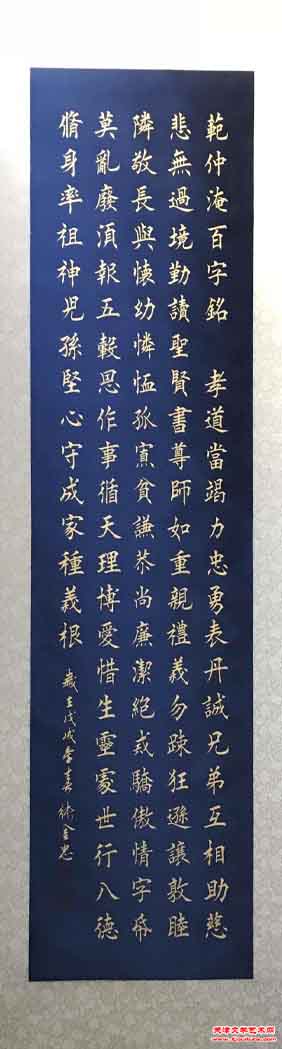 範仲淹百字銘 孝道當竭力忠勇表丹誠兄弟互相助慈
悲無過境勤讀聖賢書尊師如重親禮義勿疎狂遜讓敦睦
隣敬長與懐幼憐恤孤寡貧謙恭尚廉潔絶戒驕傲情字紙
莫亂廢須報五穀恩作事循天理博愛惜生靈處世行八德
脩身率祖神児孫堅心守成家種義根
歲在戊戌季春
天津文学艺术网
www.tjwenyw.com